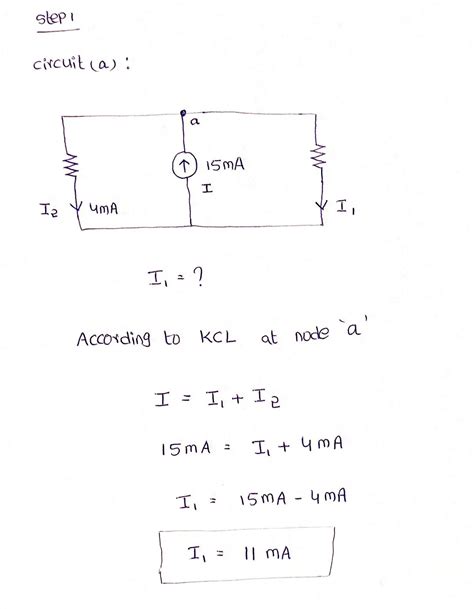 Step 1
circuit (a) :
a
15mA
I
I₂ 4mA
I₁
I₁ = ?
According to KCL at node 'a'
I = I₁ + I₂
15mA = I₁ + 4mA
I₁ = 15mA - 4mA
I₁ = 11 mA